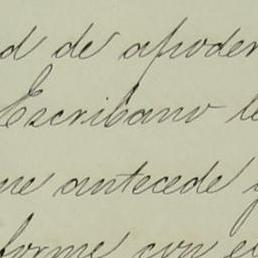 d de apoder
Escribano le
ne antecede y
forme con el